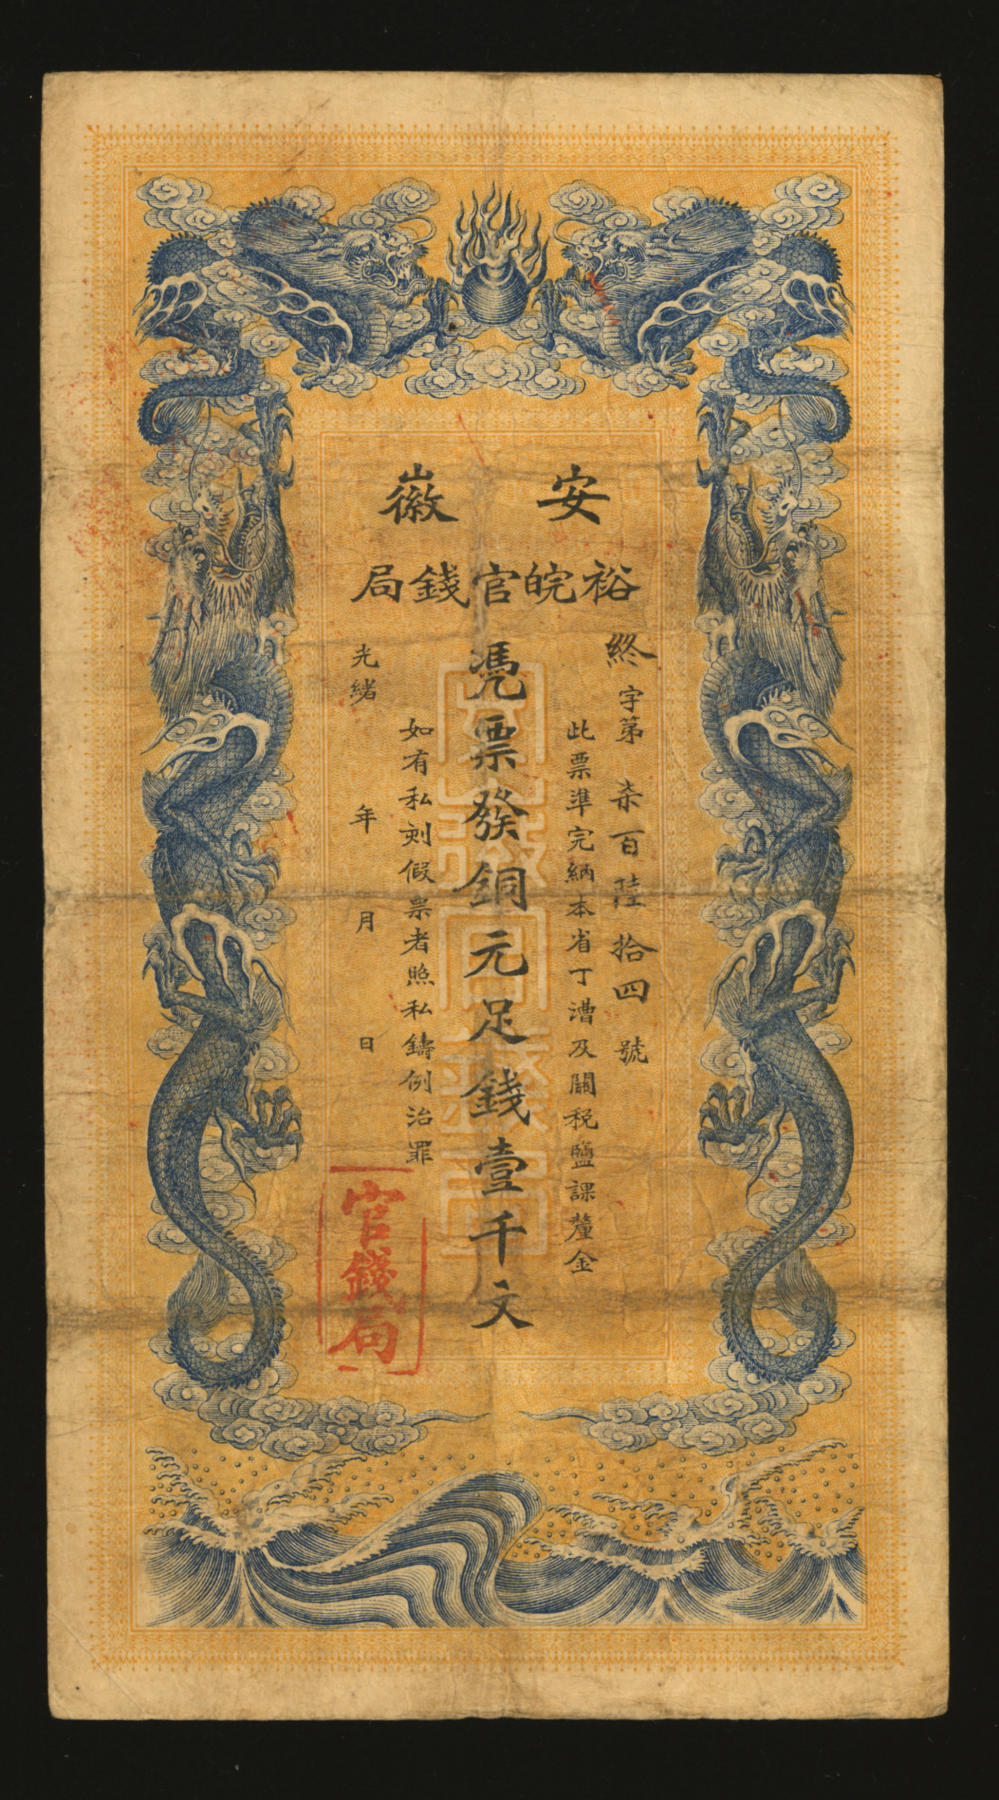 安徽
裕皖官錢局
終字第柒百陸拾四號
此票準完納本省丁漕及關稅鹽課釐金
憑票發銅元足錢壹千文
如有私刻假票者照私鑄例治罪
光緒年月日
官錢局
安徽官錢局